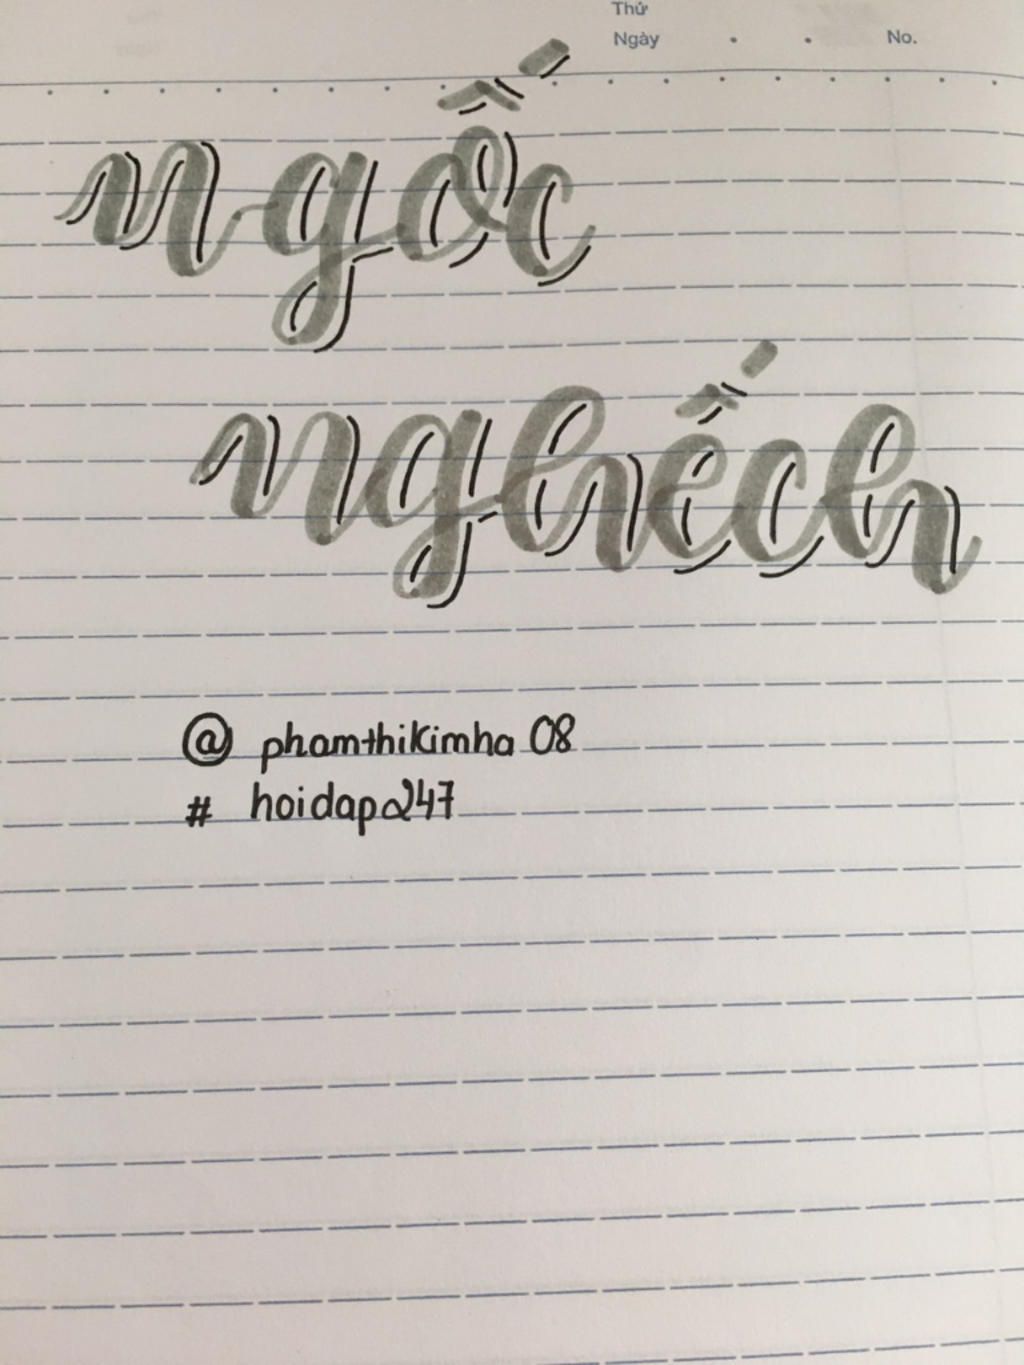 Thứ
Ngày . . No.
ngốc
nghếch
@ phamthikimha 08
# hoidap247